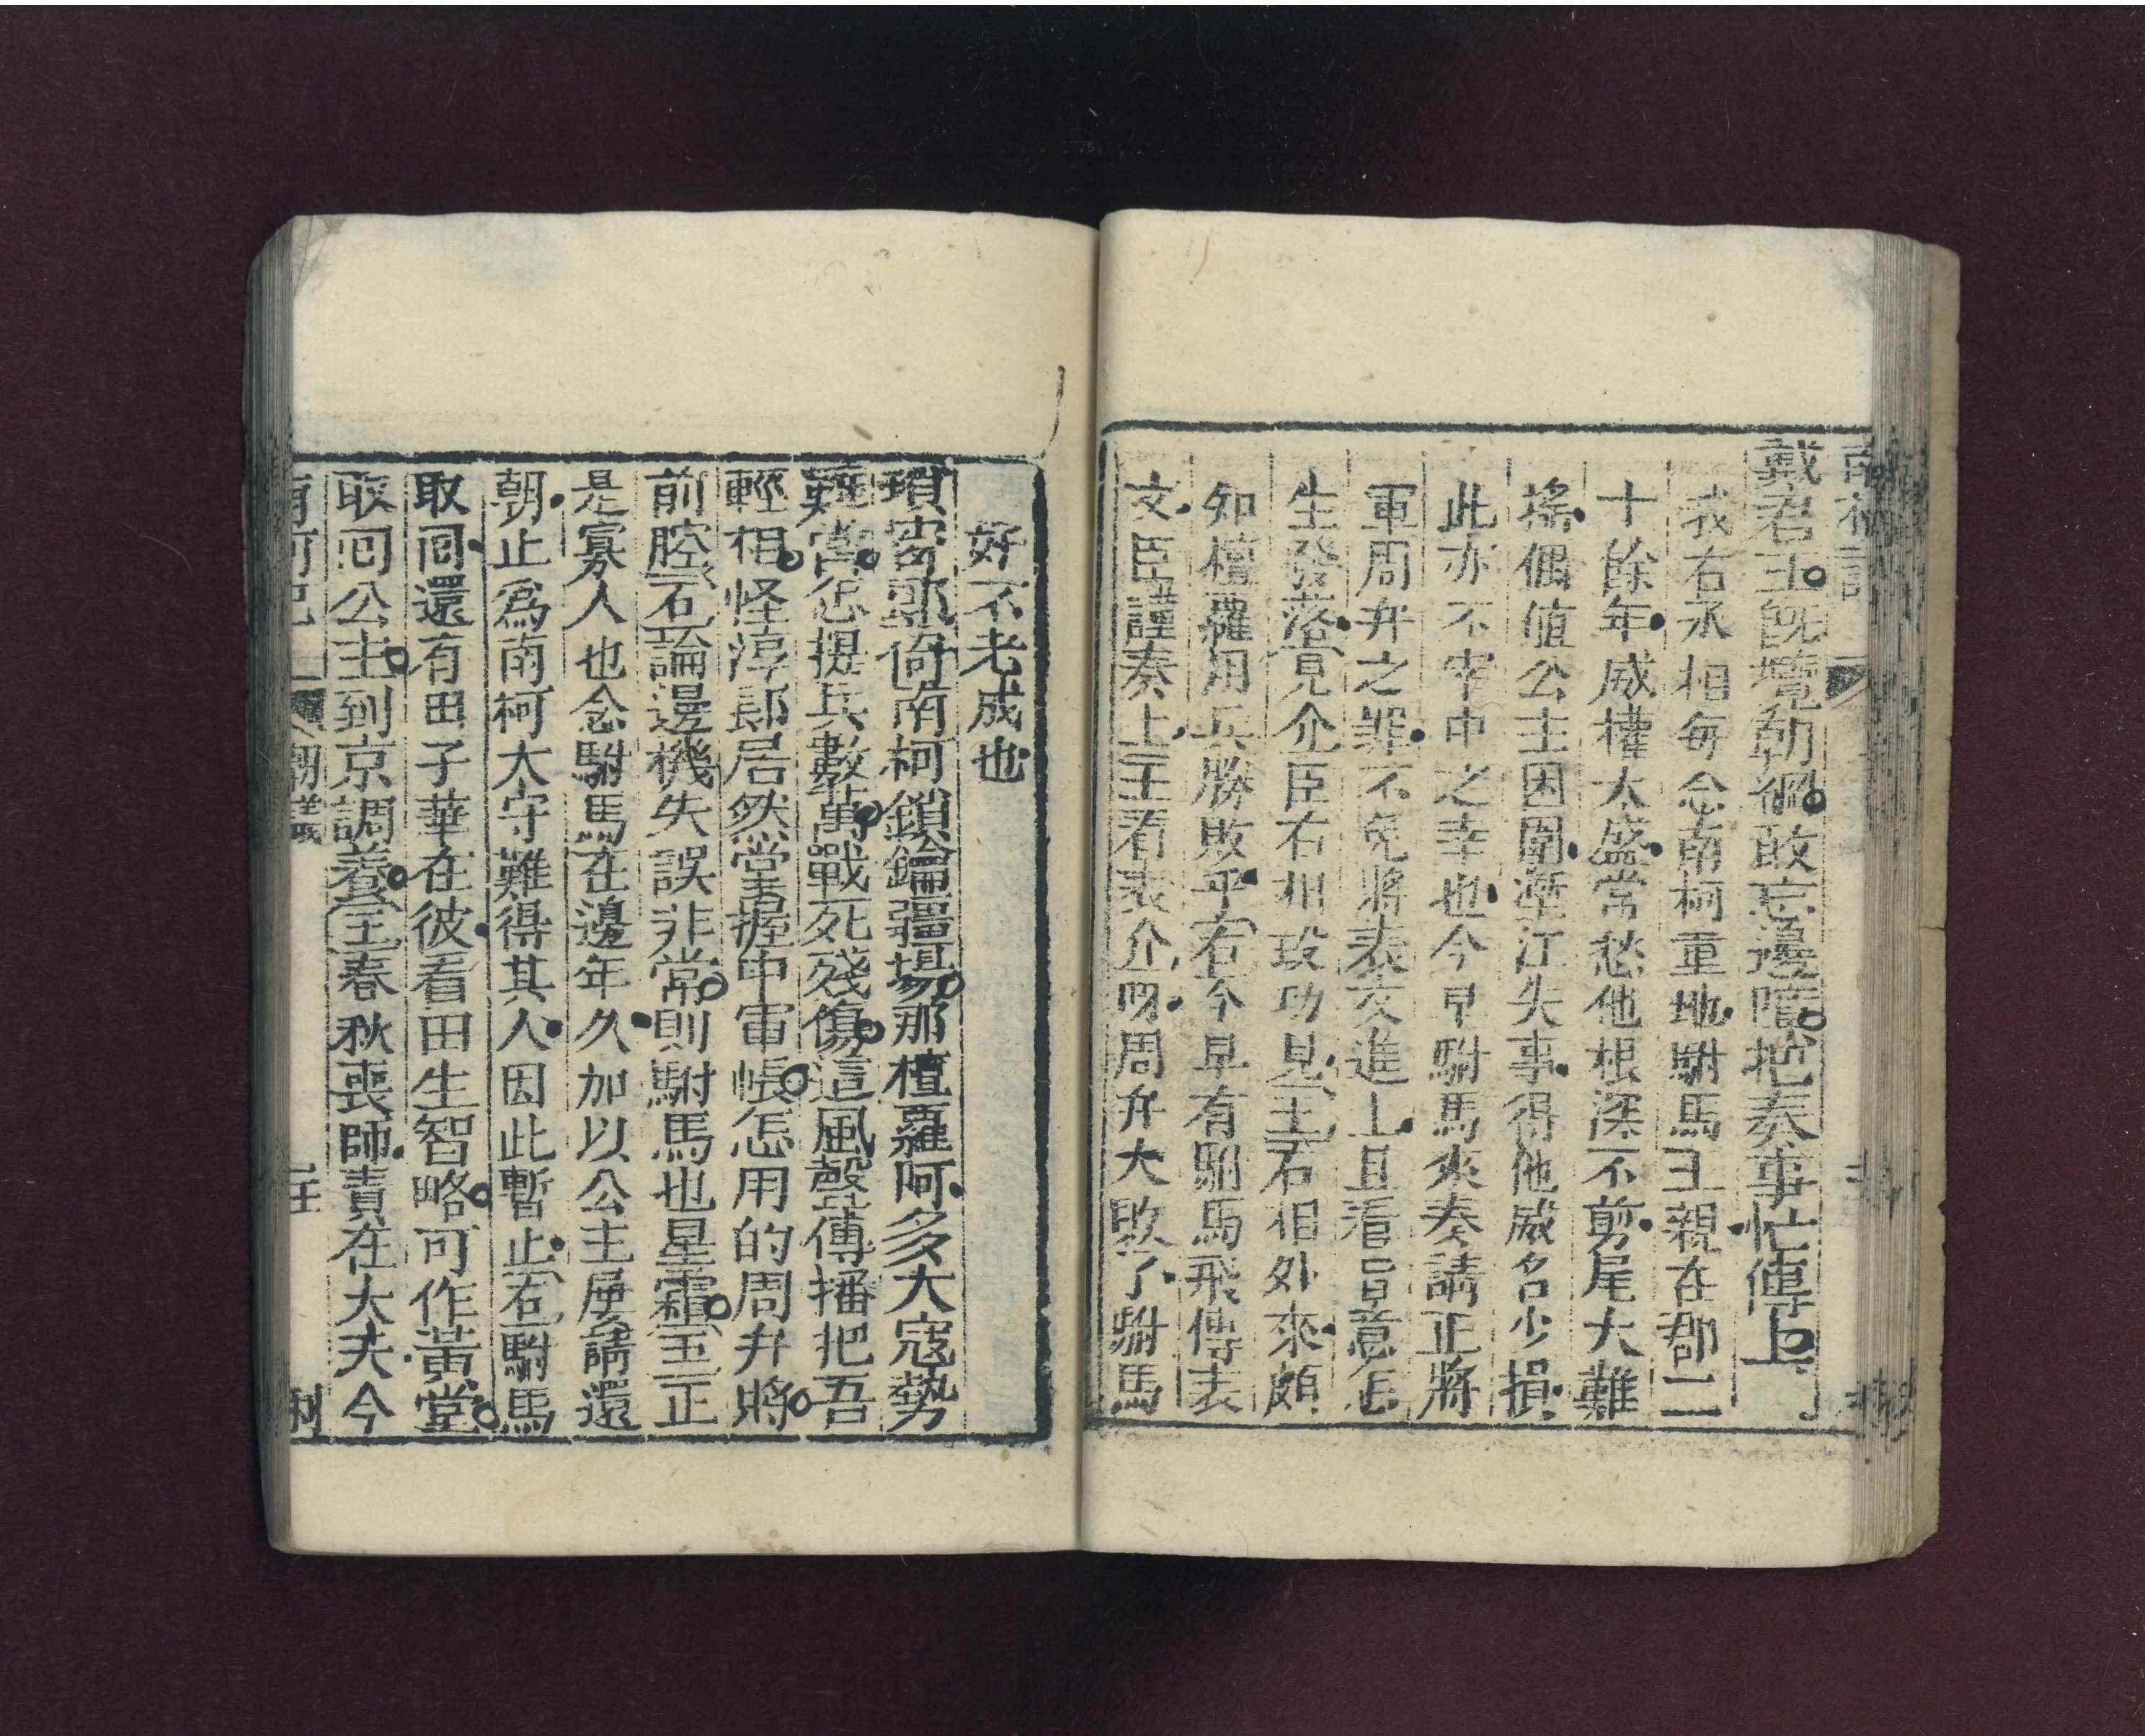 南柯記
戴君王。既攬朝綱。敢忘邊嚷。把奏事忙傳上。
我右丞相每念南柯重地.駙馬王親.在郡二
十餘年.威權太盛.常愁他根深不剪.尾大難
搖.偶值公主困圍.壍江失事.得他威名少損.
此亦不幸中之幸也.今早駙馬來奏.請正將
軍周弁之罪.不免將表文進上.且看旨意怎
生發落.見介臣右相段功見.王右相外來.頗
知檀蘿用兵勝敗乎.右今早有駙馬飛傳表
文.臣謹奏上.王看表介呀.周弁大敗了.駙馬
好不老成也
瑣窗郎倚南柯鎖鑰疆場。那檀蘿阿.多大寇勢
難當。怎提兵數萬。戰死殘傷。這風聲傳播把吾
輕相。怪淳郎居然堂握中軍帳。怎用的周弁將。
前腔右論邊機失誤非常。則駙馬也星霜。王正
是寡人也念駙馬在邊年久.加以公主屢請還
朝.止爲南柯太守難得其人.因此暫止.右駙馬
取囘.還有田子華在彼.看田生智略。可作黃堂。
取囘公主。到京調養。王春秋喪師.責在大夫.今
南柯記 朝議 三